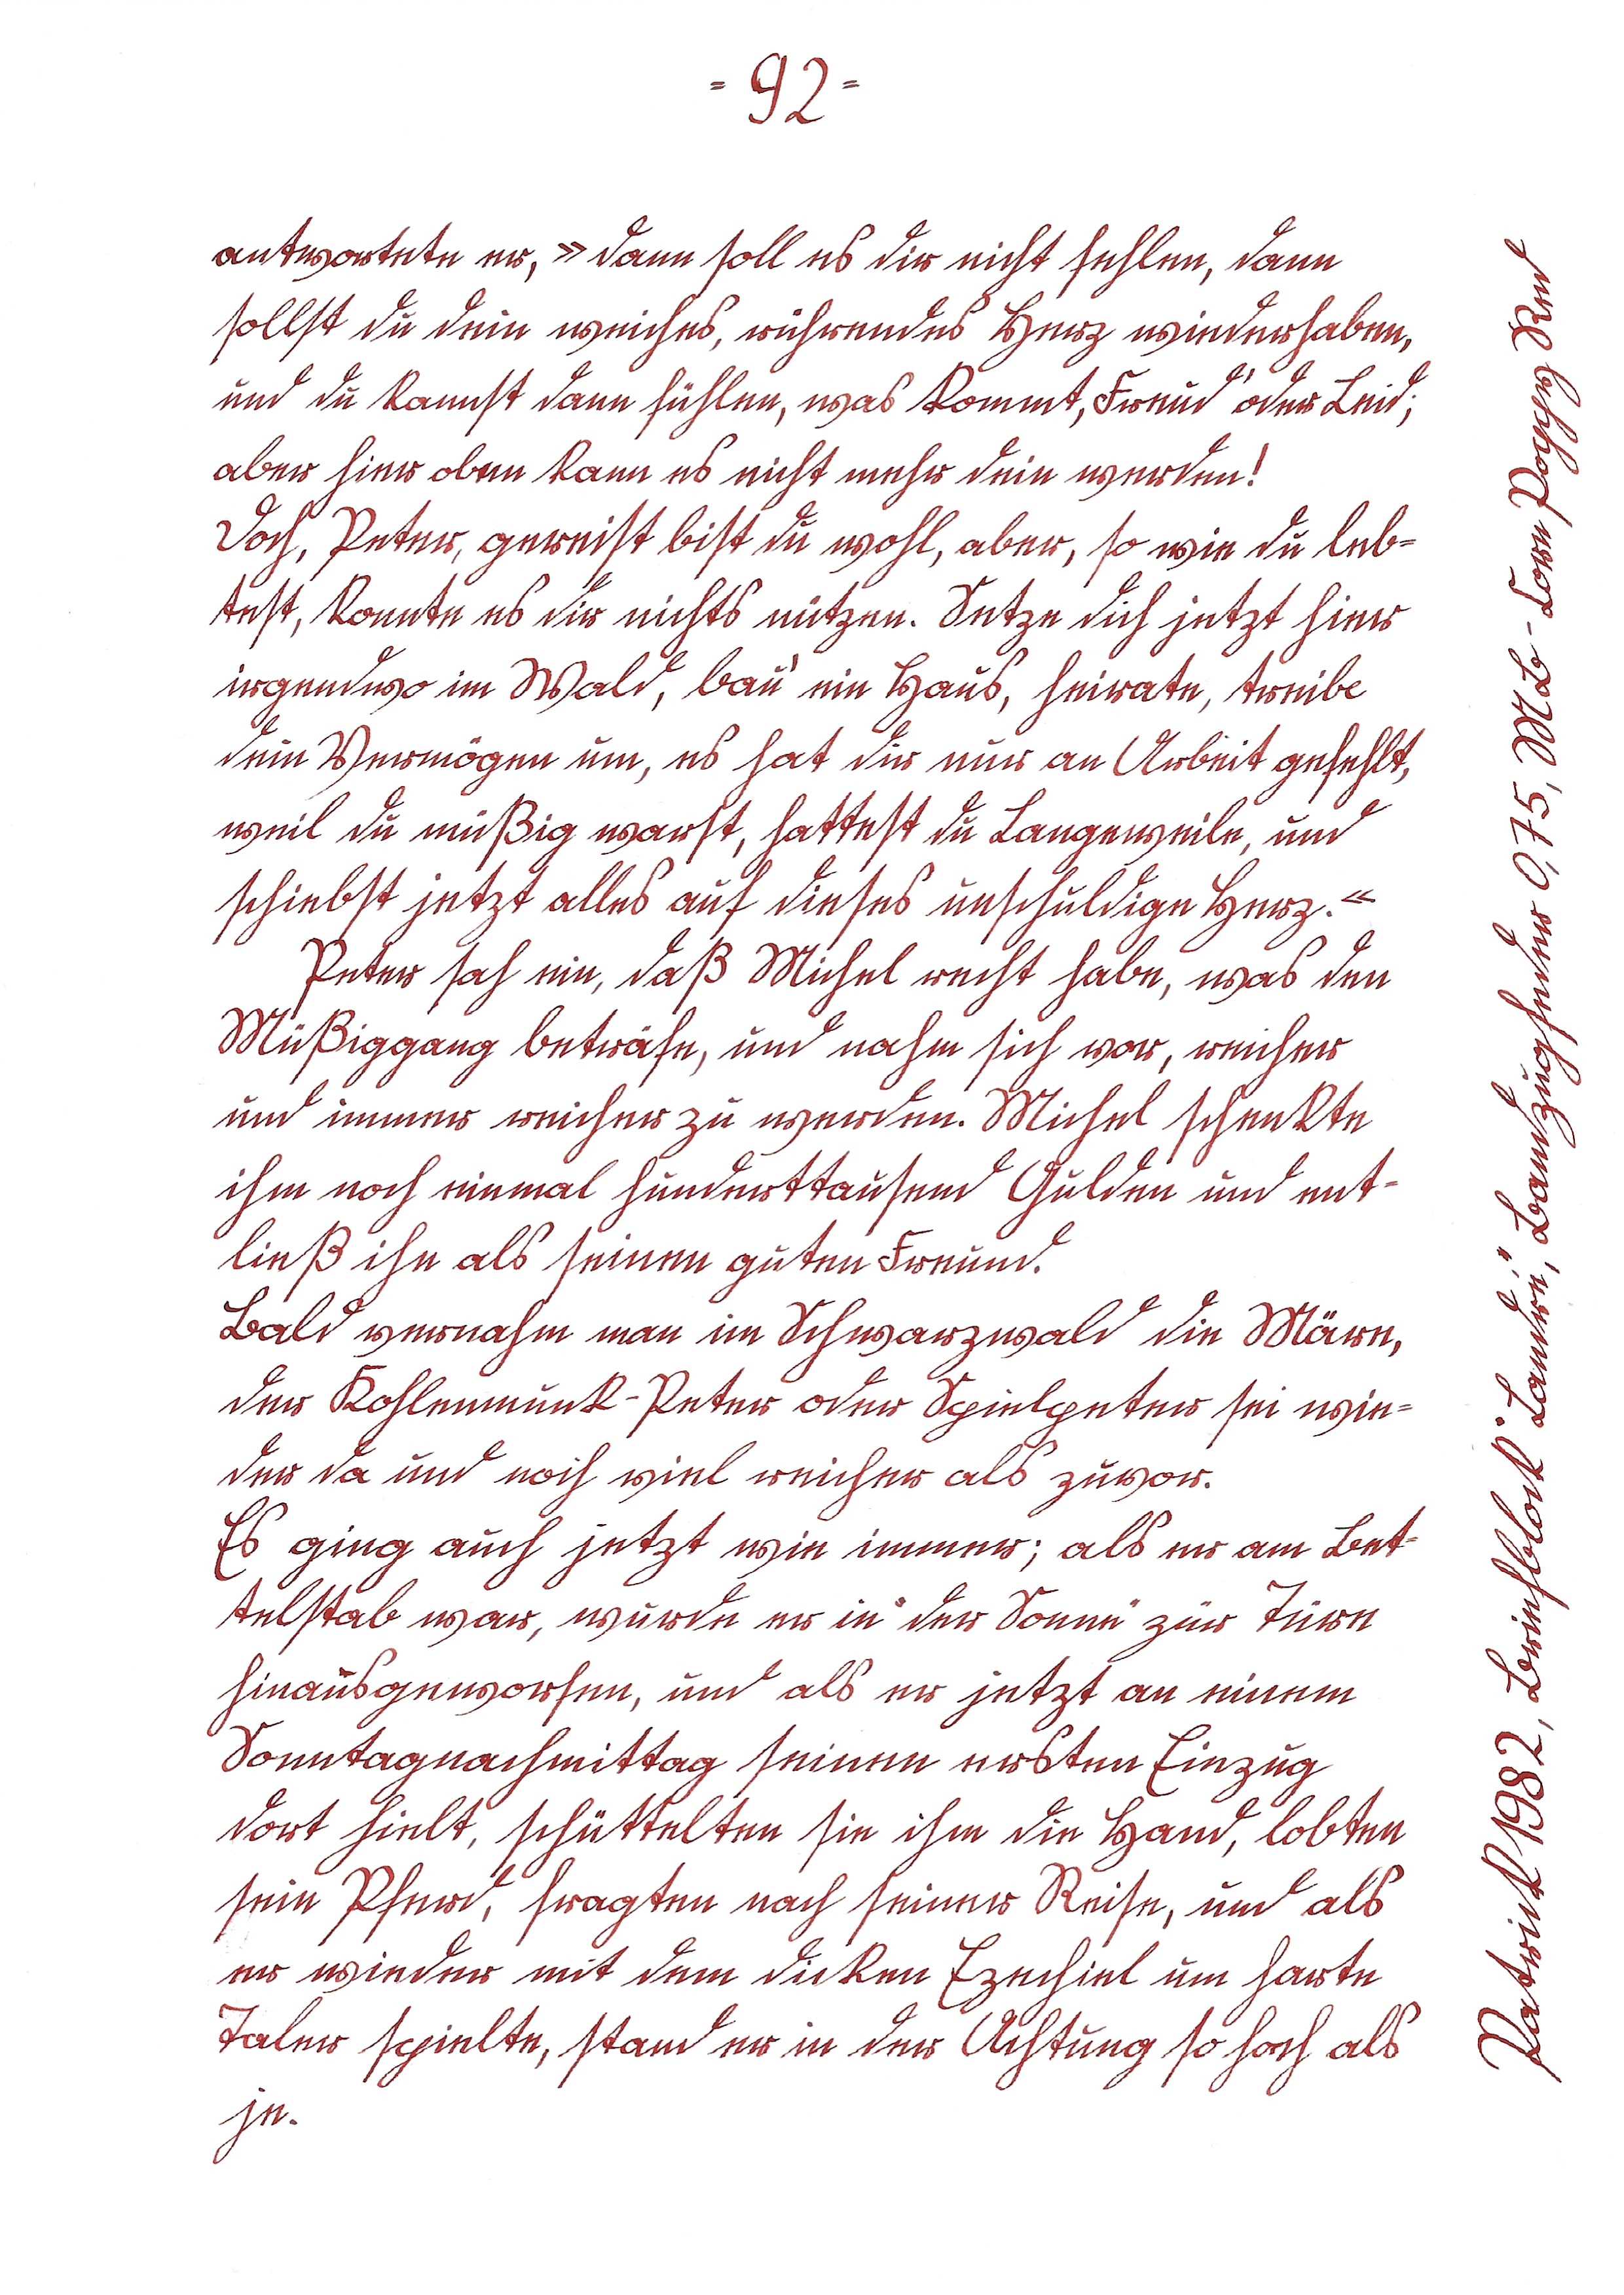 - 92 -
antwortete er, » dann soll es dir nicht fehlen, dann
sollst du dein weiches, rührendes Herz wiederhaben,
und du kannst dann fühlen, was kommt, Freud' oder Leid;
aber hier oben kann es nicht mehr dein werden!
Doch, Peter, gereist bist du wohl, aber, so wie du leb=
test, konnte es dir nichts nützen. Setze dich jetzt hier
irgendwo im Wald, bau' ein Haus, heirate, treibe
dein Vermögen um, es hat dir nur an Arbeit gefehlt,
weil du müßig warst, hattest du Langeweile, und
schiebst jetzt alles auf dieses unschuldige Herz. «
Peter sah ein, daß Michel recht habe, was den
Müßiggang beträfe, und nahm sich vor, reicher
und immer reicher zu werden. Michel schenkte
ihm noch einmal hunderttausend Gulden und ent-
ließ ihn als seinen guten Freund.
Bald vernahm man im Schwarzwald die Märe,
der Kohlenmunk-Peter oder Spielpeter sei wie=
der da und noch viel reicher als zuvor.
Es ging auch jetzt wie immer; als er am Bet-
telstab war, wurde er in "der Sonne" zur Türe
hinausgeworfen, und als er jetzt an einem
Sonntagnachmittag seinen ersten Einzug
dort hielt, schüttelten sie ihm die Hand, lobten
sein Pferd, fragten nach seiner Reise, und als
er wieder mit dem dicken Ezechiel um harte
Taler spielte, stand er in der Achtung so hoch als
je.
Patrick 1982, Briefblock "Landré", Bandzugfeder 0,75, ML - Lorn Poppy Red